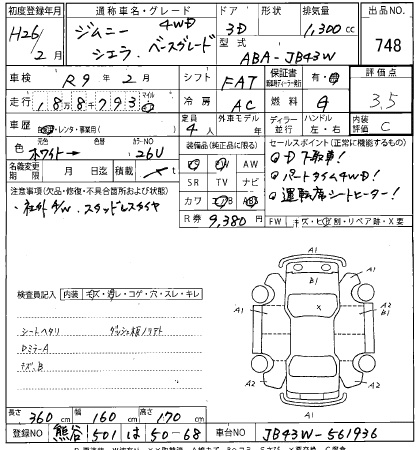 初度登録年月 通称車名・グレード ドア 形状 排気量 出品NO.
H26/2月 ジムニー 4WD 3D 1,300cc 748
シエラ ベースグレード 型式 ABA-JB43W
車検 R9年2月 シフト FAT 保証書 有・無 評価点
走行 188793 マイル km 冷房 AC 燃料 G 3.5
車歴 自家・レンタ・事業用( ) 定員 4人 外車モデル ディーラー 並行 ハンドル 左・右 内装評価 C
色 ホワイト→ 色替 カラーNO 26U
装備品(純正品に限る) セールスポイント(正常に機能するもの)
名義変更期限 月 日迄 積載
PS PW AW
SR TV ナビ
カワ エアB ABS
R券 9,380円
①D下取車!
②パートタイム4WD!
③運転席シートヒーター!
注意事項(欠品・修復・不具合箇所および状態)
社外A/W. スタッドレスタイヤ
FW キズ・ヒビ割・リペア跡・X要
検査員記入 内装 キズ・汚レ・コゲ・穴・スレ・キレ
シートヘタリ
DミラーA
キズ.B
A1 A1 B1 X A2 A2 A2 A1
長さ 360cm 幅 160cm 高さ 170cm
登録NO 熊谷 501 は 50-68 車台NO JB43W-561936